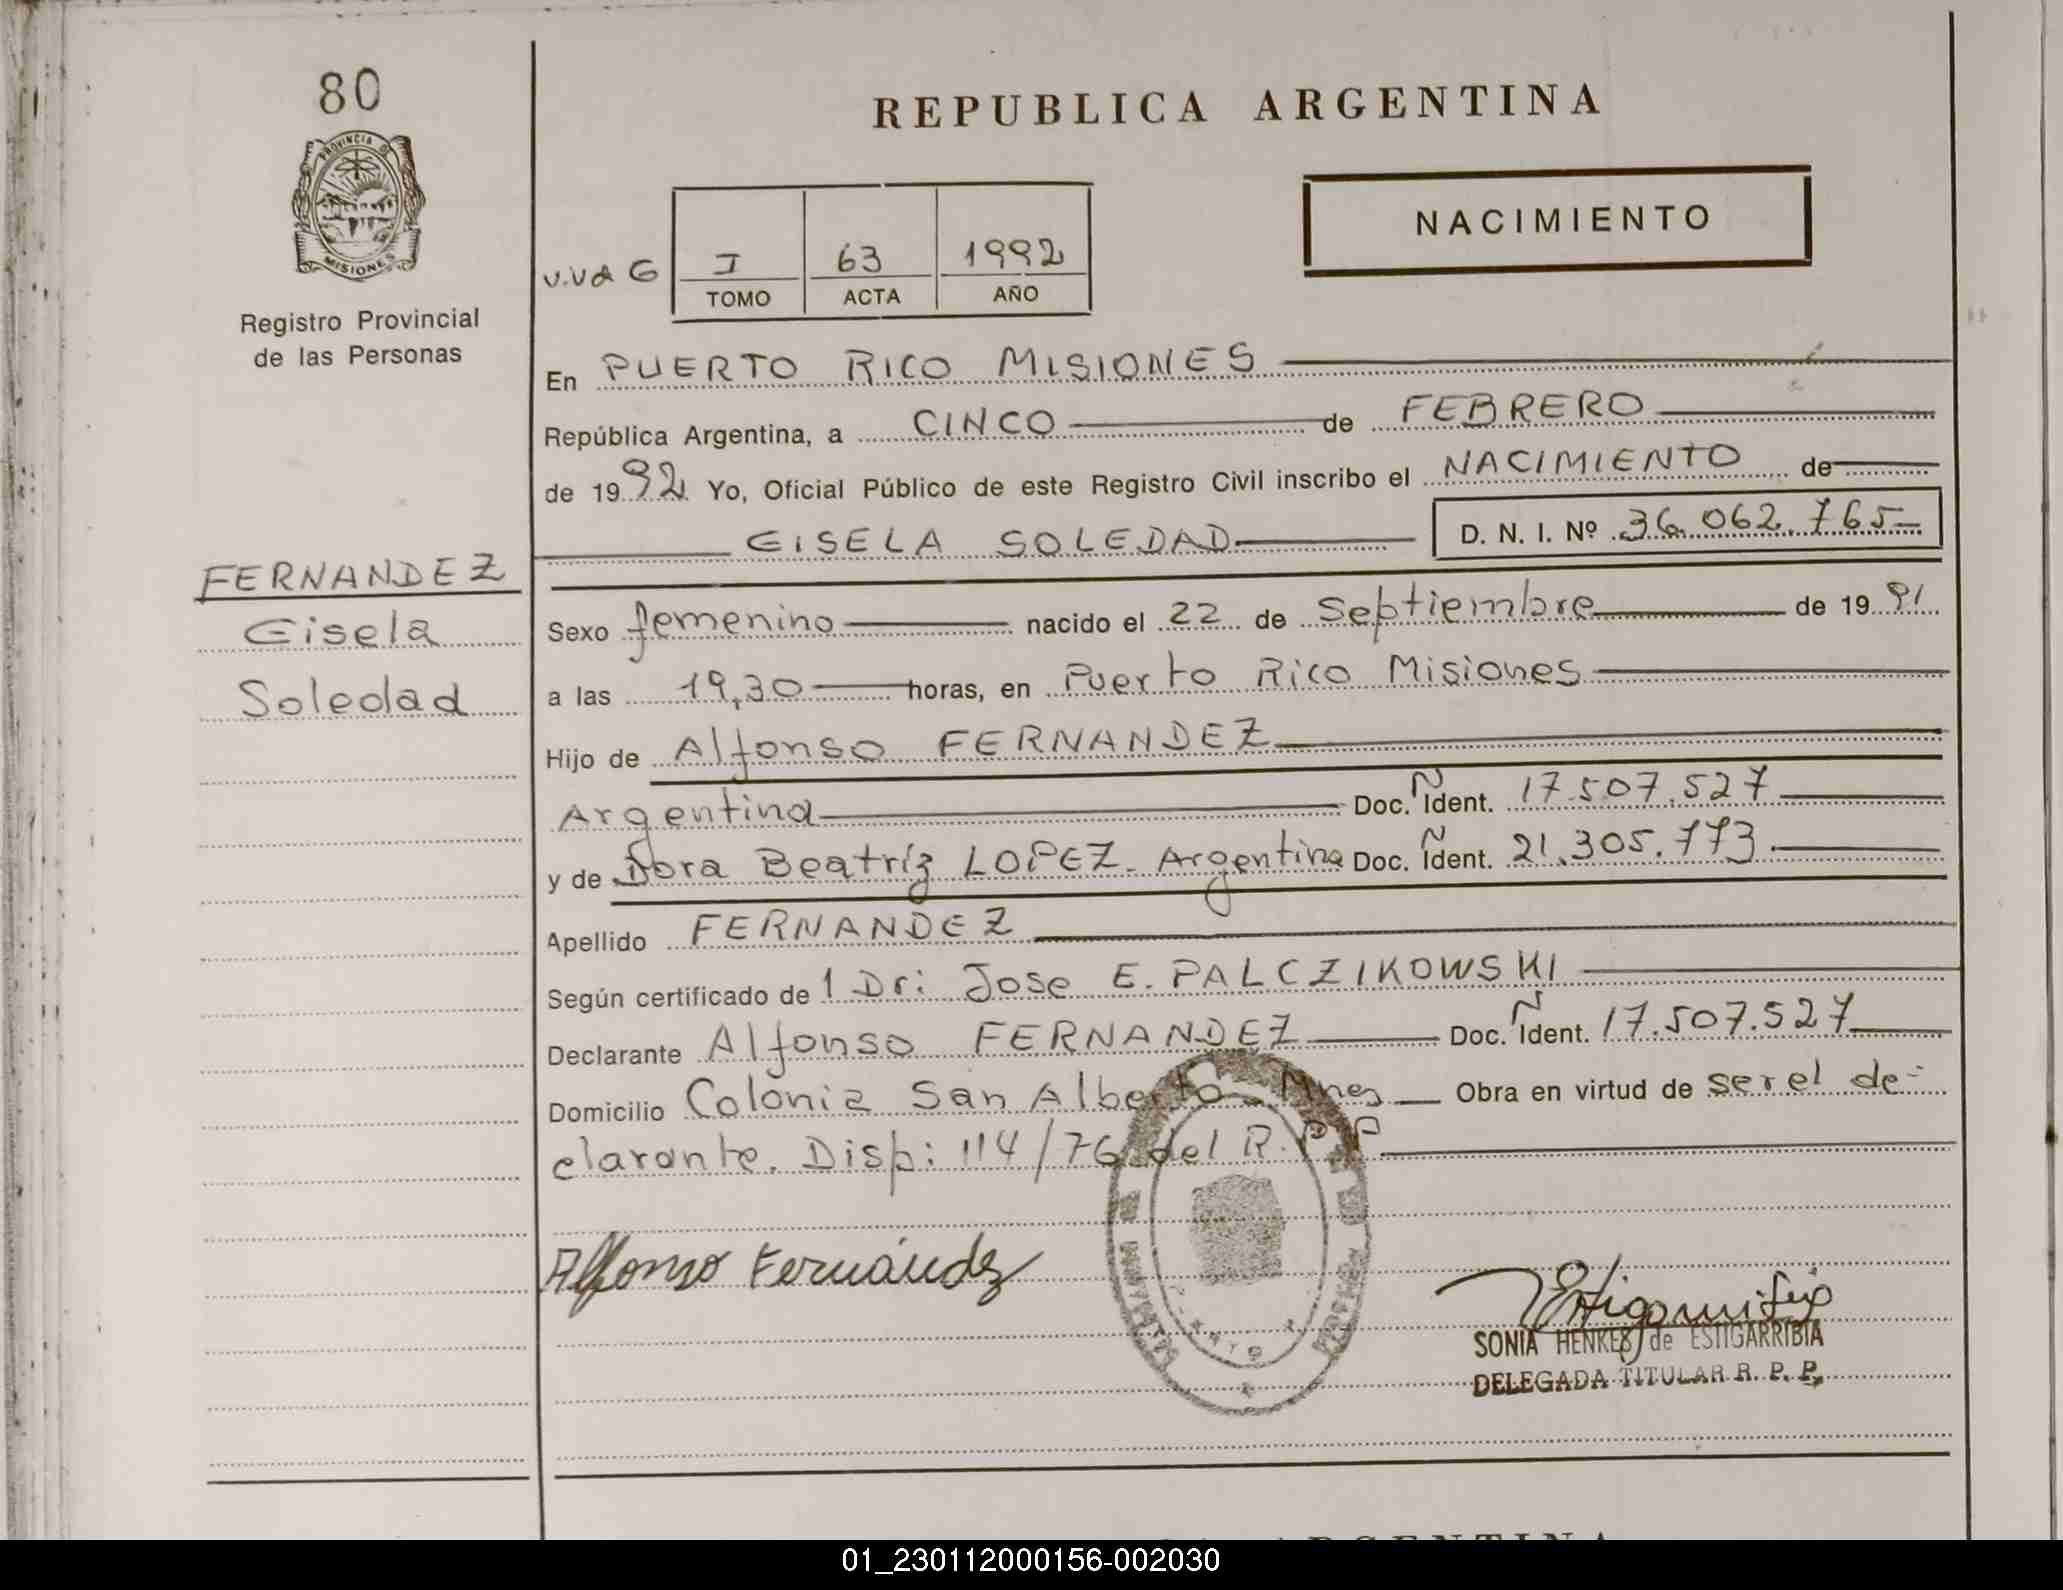 80
REPUBLICA ARGENTINA
PROVINCIA DE
MISIONES
NACIMIENTO
I 63 1992
TOMO ACTA AÑO
Registro Provincial
de las Personas
En PUERTO RICO MISIONES
República Argentina, a CINCO de FEBRERO
de 1992 Yo, Oficial Público de este Registro Civil inscribo el NACIMIENTO de
GISELA SOLEDAD D. N. I. Nº 36.062.765
FERNANDEZ
Gisela
Soledad
Sexo femenino nacido el 22 de Septiembre de 1991
a las 19,30 horas, en Puerto Rico Misiones
Hijo de Alfonso FERNANDEZ
Argentina Doc. Ñ Ident. 17.507.527
y de Dora Beatríz LOPEZ - Argentina Doc. Ñ Ident. 21.305.773
Apellido FERNANDEZ
Según certificado de 1 Dr: Jose E. PALCZIKOWSKI
Declarante Alfonso FERNANDEZ Doc. Ñ Ident. 17.507.527
Domicilio Colonia San Alberto - Mnes Obra en virtud de ser el de-
clarante. Disp: 114/76 del R.P.P
Alfonso Fernández
SONIA HENKES de ESTIGARRIBIA
DELEGADA TITULAR R. P. P.
01_230112000156-002030